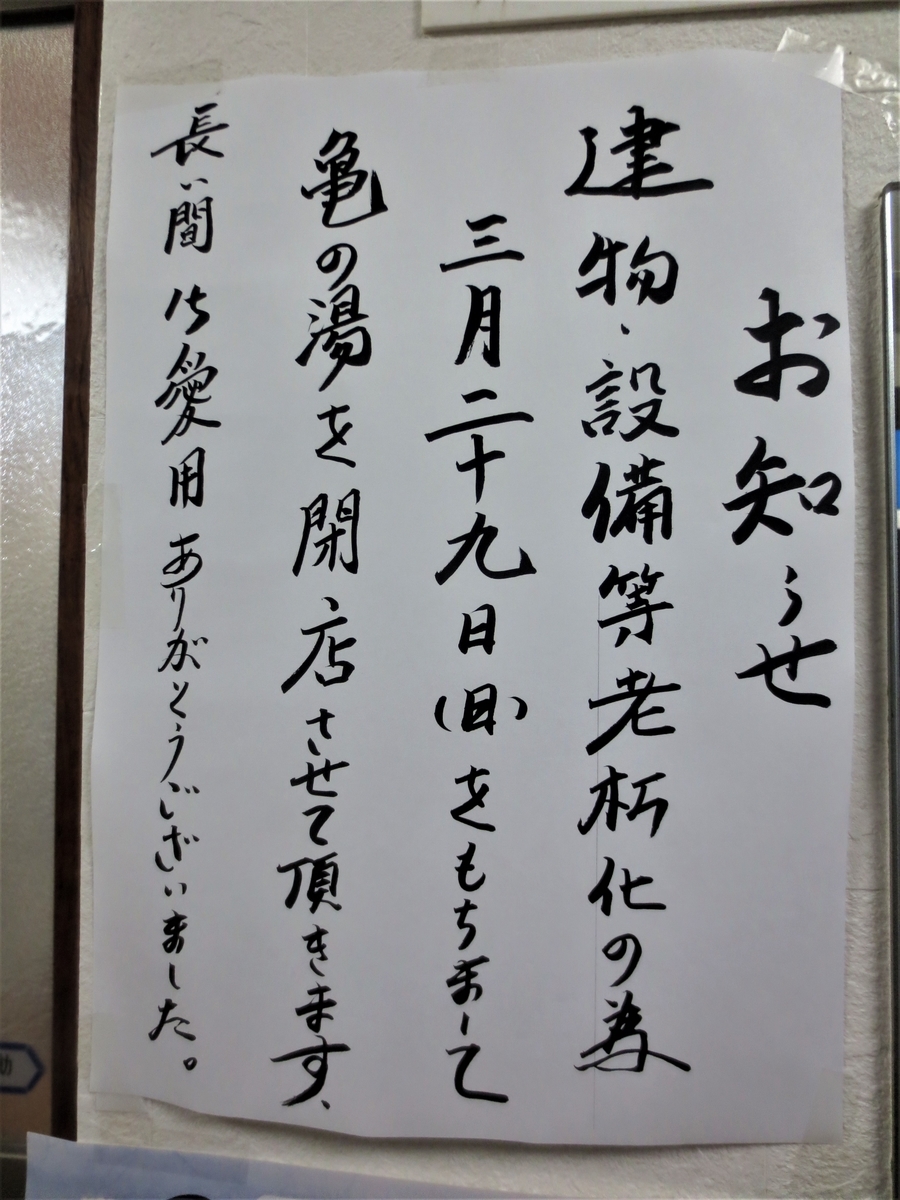 お知らせ
建物・設備等老朽化の為
三月二十九日(日)をもちまして
亀の湯を閉店させて頂きます、
長い間御愛用ありがとうございました。